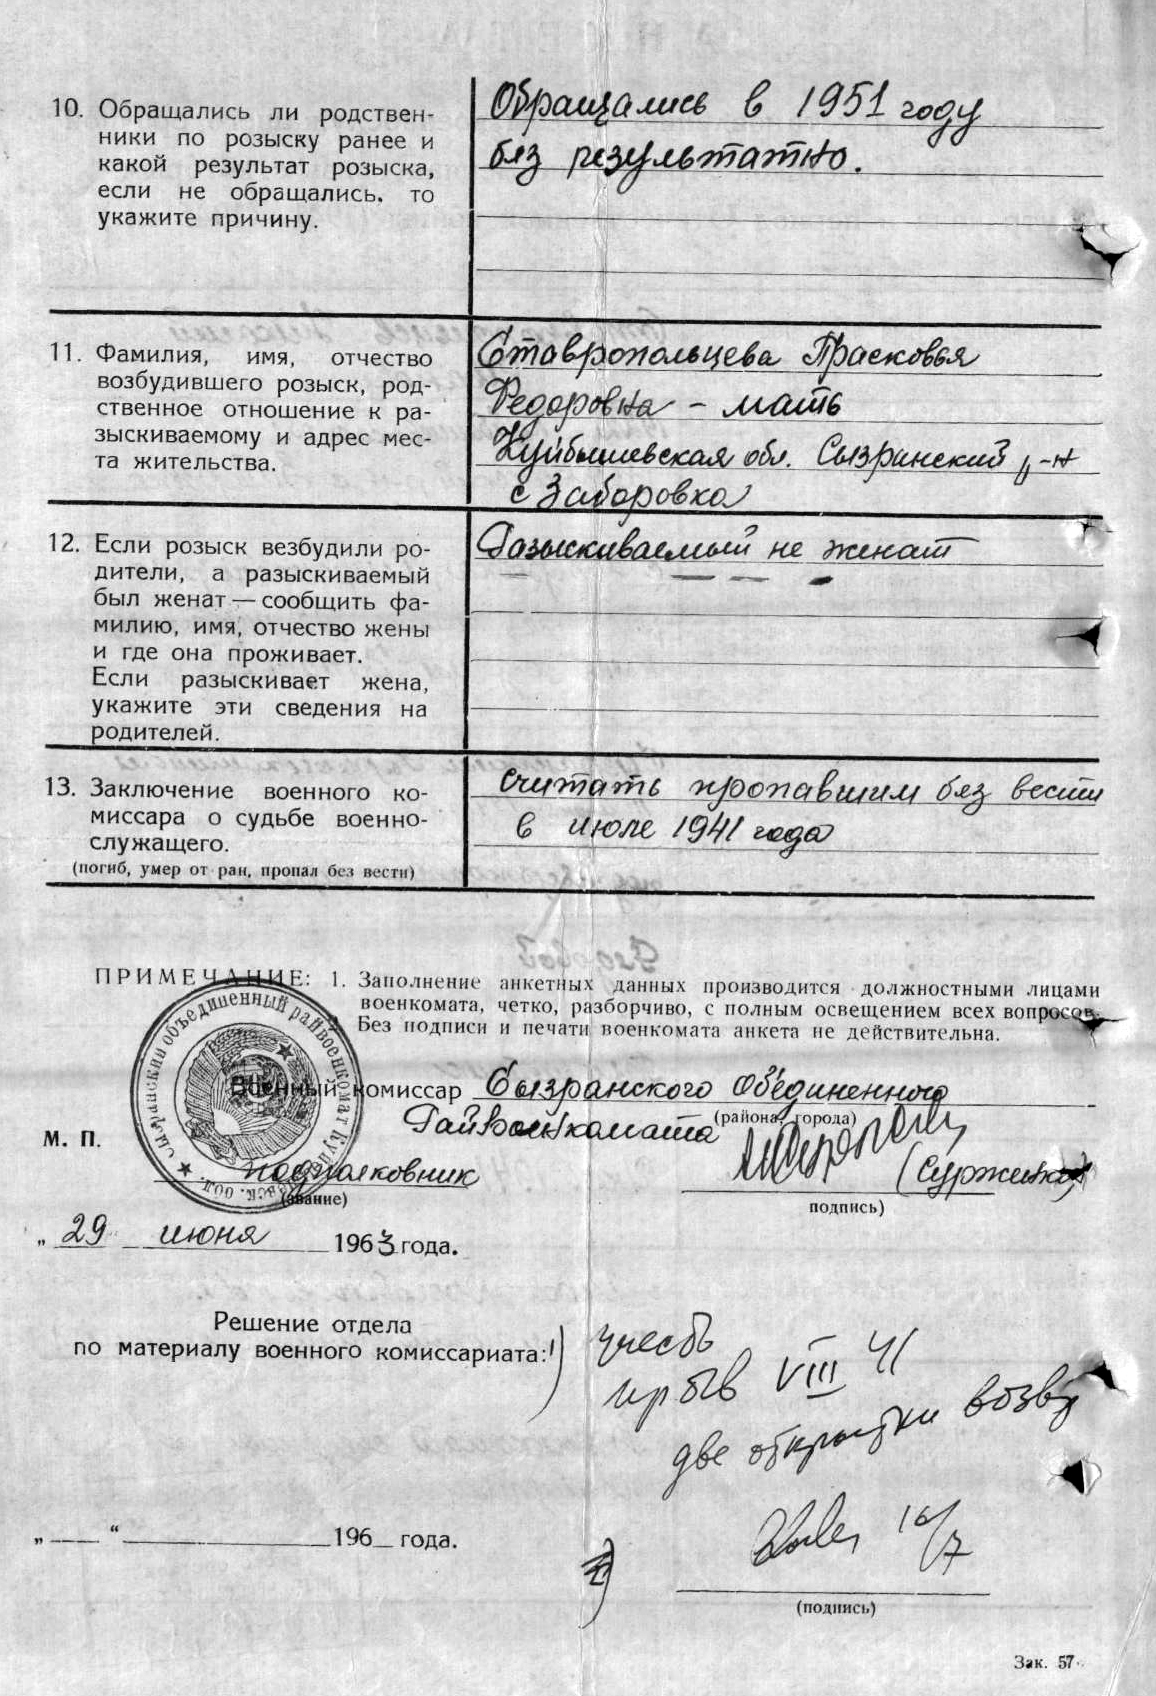 10. Обращались ли родствен-
ники по розыску ранее и
какой результат розыска,
если не обращались. то
укажите причину.
Обращались в 1951 году
без результатно.
11. Фамилия, имя, отчество
возбудившего розыск, род-
ственное отношение к ра-
зыскиваемому и адрес мес-
та жительства.
Ставропольцева Прасковья
Федоровна - мать
Куйбышевская обл. Сызранский р-н
с Заборовка
12. Если розыск везбудили ро-
дители, а разыскиваемый
был женат — сообщить фа-
милию, имя, отчество жены
и где она проживает.
Если разыскивает жена,
укажите эти сведения на
родителей.
Разыскиваемый не женат
13. Заключение военного ко-
миссара о судьбе военно-
служащего.
(погиб, умер от ран, пропал без вести)
считать пропавшим без вести
в июле 1941 года
ПРИМЕЧАНИЕ: 1. Заполнение анкетных данных производится должностными лицами
военкомата, четко, разборчиво, с полным освещением всех вопросов.
Без подписи и печати военкомата анкета не действительна.
Сызранский объединенный райвоенкомат Куйбышевск. обл.
Военный комиссар Сызранского объединенного
(района, города)
Райвоенкомата
М. П.
подполковник
(звание)
(Суржиков)
подпись)
„ 29 июня 1963 года.
Решение отдела
по материалу военного комиссариата:
1) учесть
пр б/в VIII 41
две открытки возвр
„ “ 196 года.
16/7
(подпись)
Зак. 57